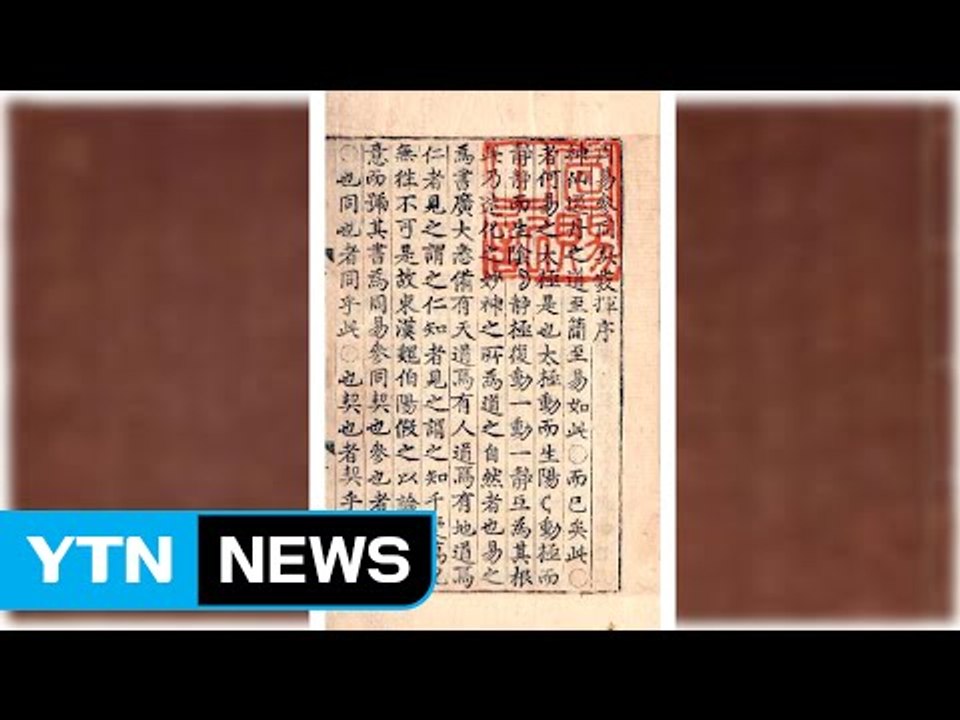 周易參同契發揮序
神仙還丹之道至簡至易如此〇而已矣此〇
者何易之太極是也太極動而生陽〻動極而
靜靜而生陰〻靜極復動一動一靜互為其根
此乃造化之妙神之所為道之自然者也易之
為書廣大悉備有天道焉有人道焉有地道焉
仁者見之謂之仁知者見之謂之知千
無往不可是故東漢魏伯陽假之以論
意而號其書為周易參同契也參也者
〇也同也者同乎此〇也契也者契乎
YTN NEWS